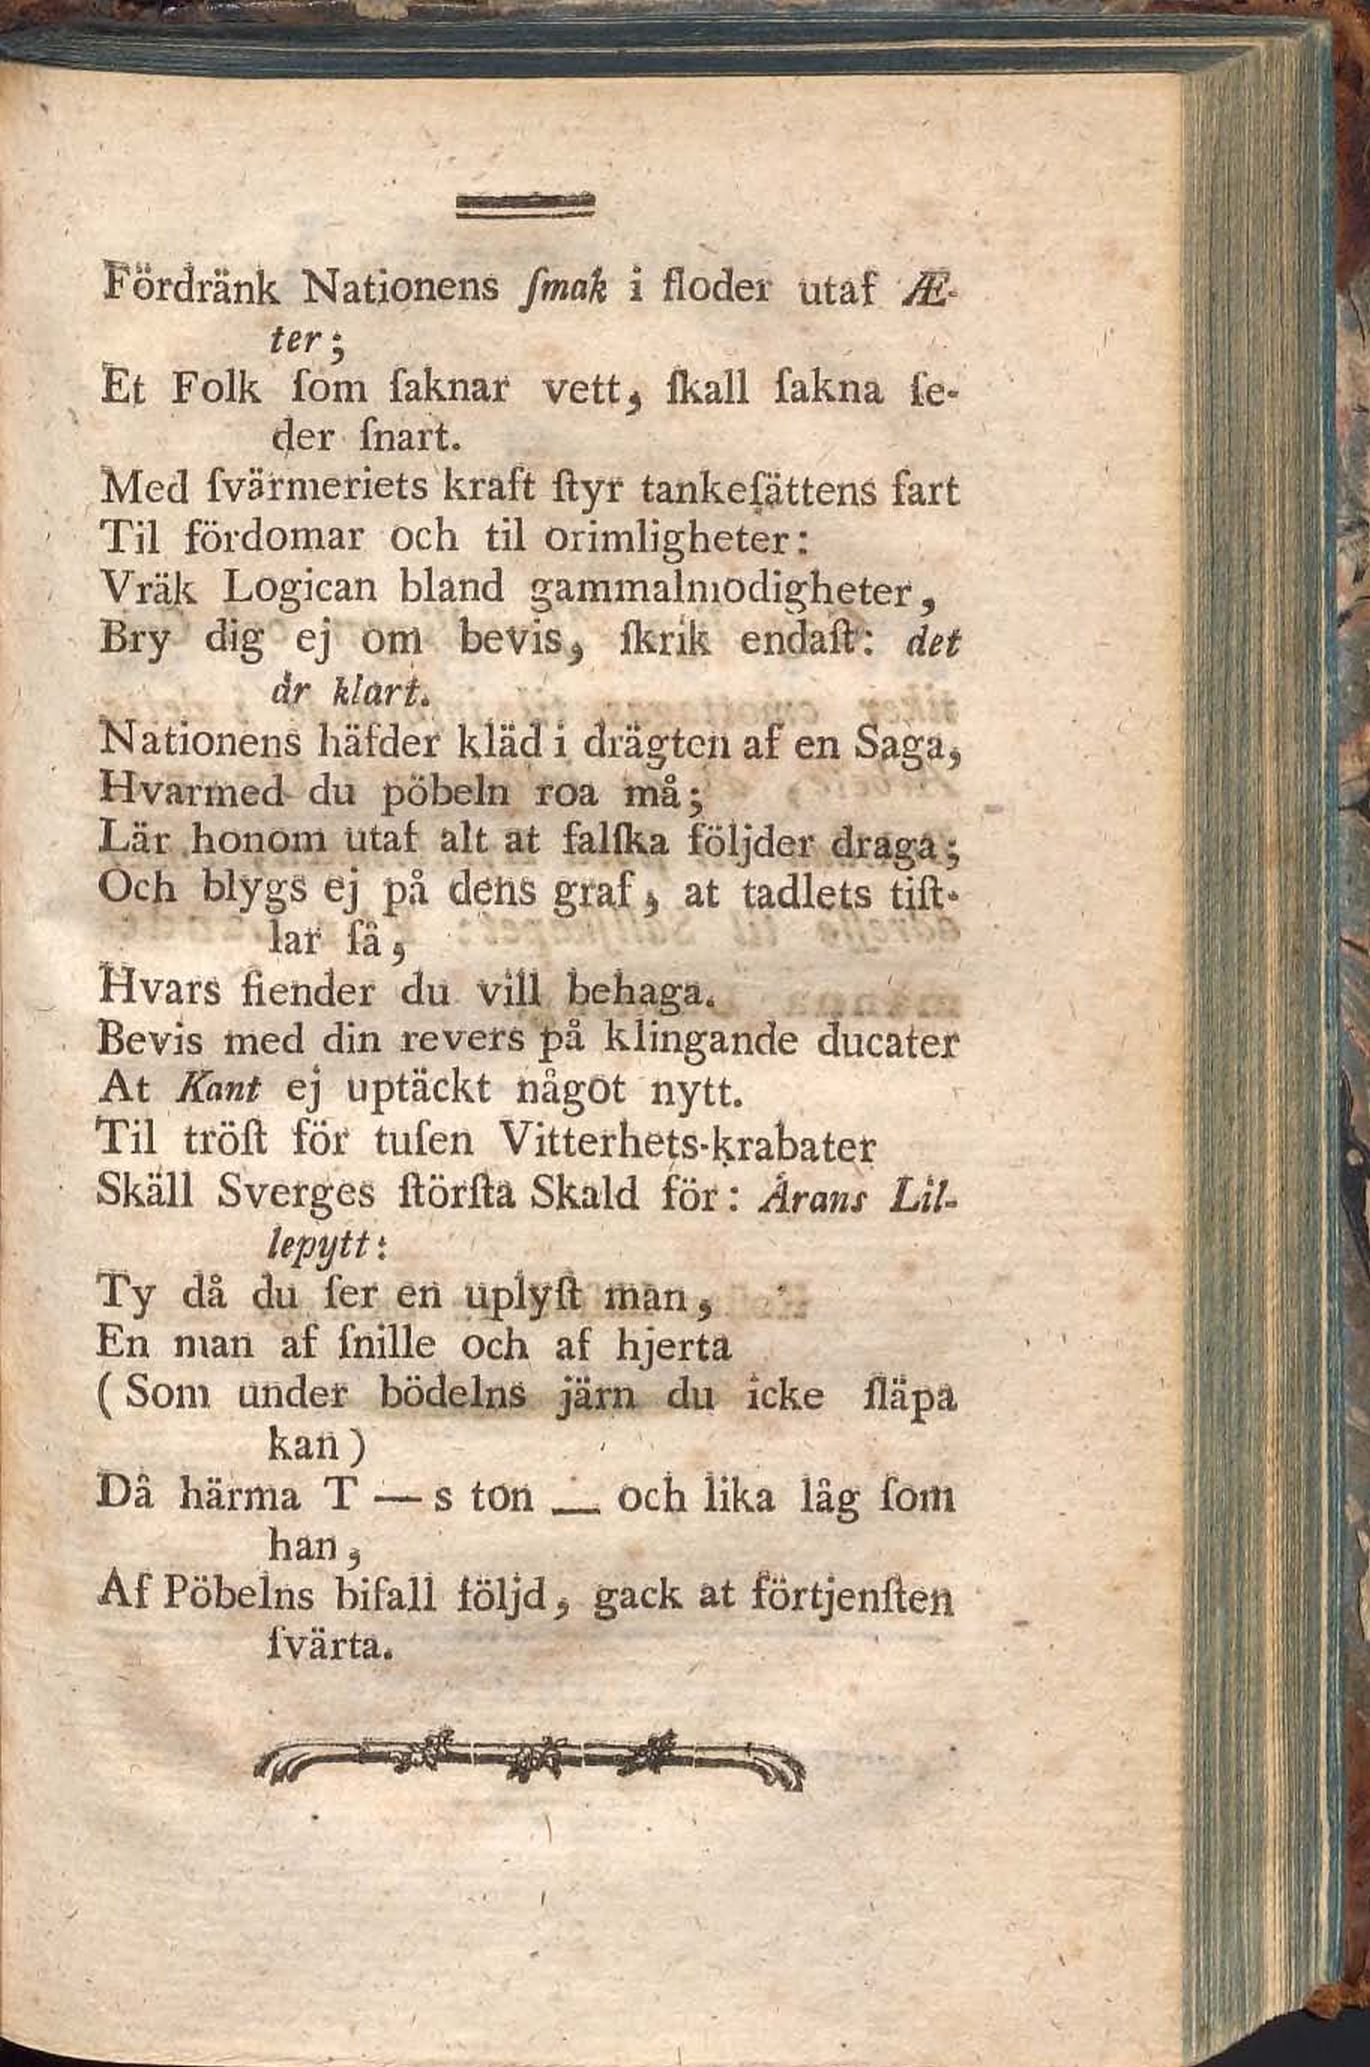 Fördränk Nationens ſmak i floder utaf Æ-
ter;
Et Folk ſom ſaknar vett, ſkall ſakna ſe-
der ſnart.
Med ſvärmeriets kraft ſtyr tankeſättens fart
Til fördomar och til orimligheter:
Vräk Logican bland gammalmodigheter,
Bry dig ej om bevis, ſkrik endaſt: det
är klart.
Nationens häfder kläd i drägten af en Saga,
Hvarmed du pöbeln roa må;
Lär honom utaf alt at falſka följder draga;
Och blygs ej på dens graf, at tadlets tiſt-
lar ſå,
Hvars fiender du vill behaga.
Bevis med din revers på klingande ducater
At Kant ej uptäckt något nytt.
Til tröſt för tuſen Vitterhets-krabater
Skäll Sverges ſtörſta Skald för: Ärans Lil-
lepytt:
Ty då du ſer en uplyſt man,
En man af ſnille och af hjerta
(Som under bödelns järn du icke ſläpa
kan)
Då härma T — s ton — och lika låg ſom
han,
Af Pöbelns bifall följd, gack at förtjenſten
ſvärta.